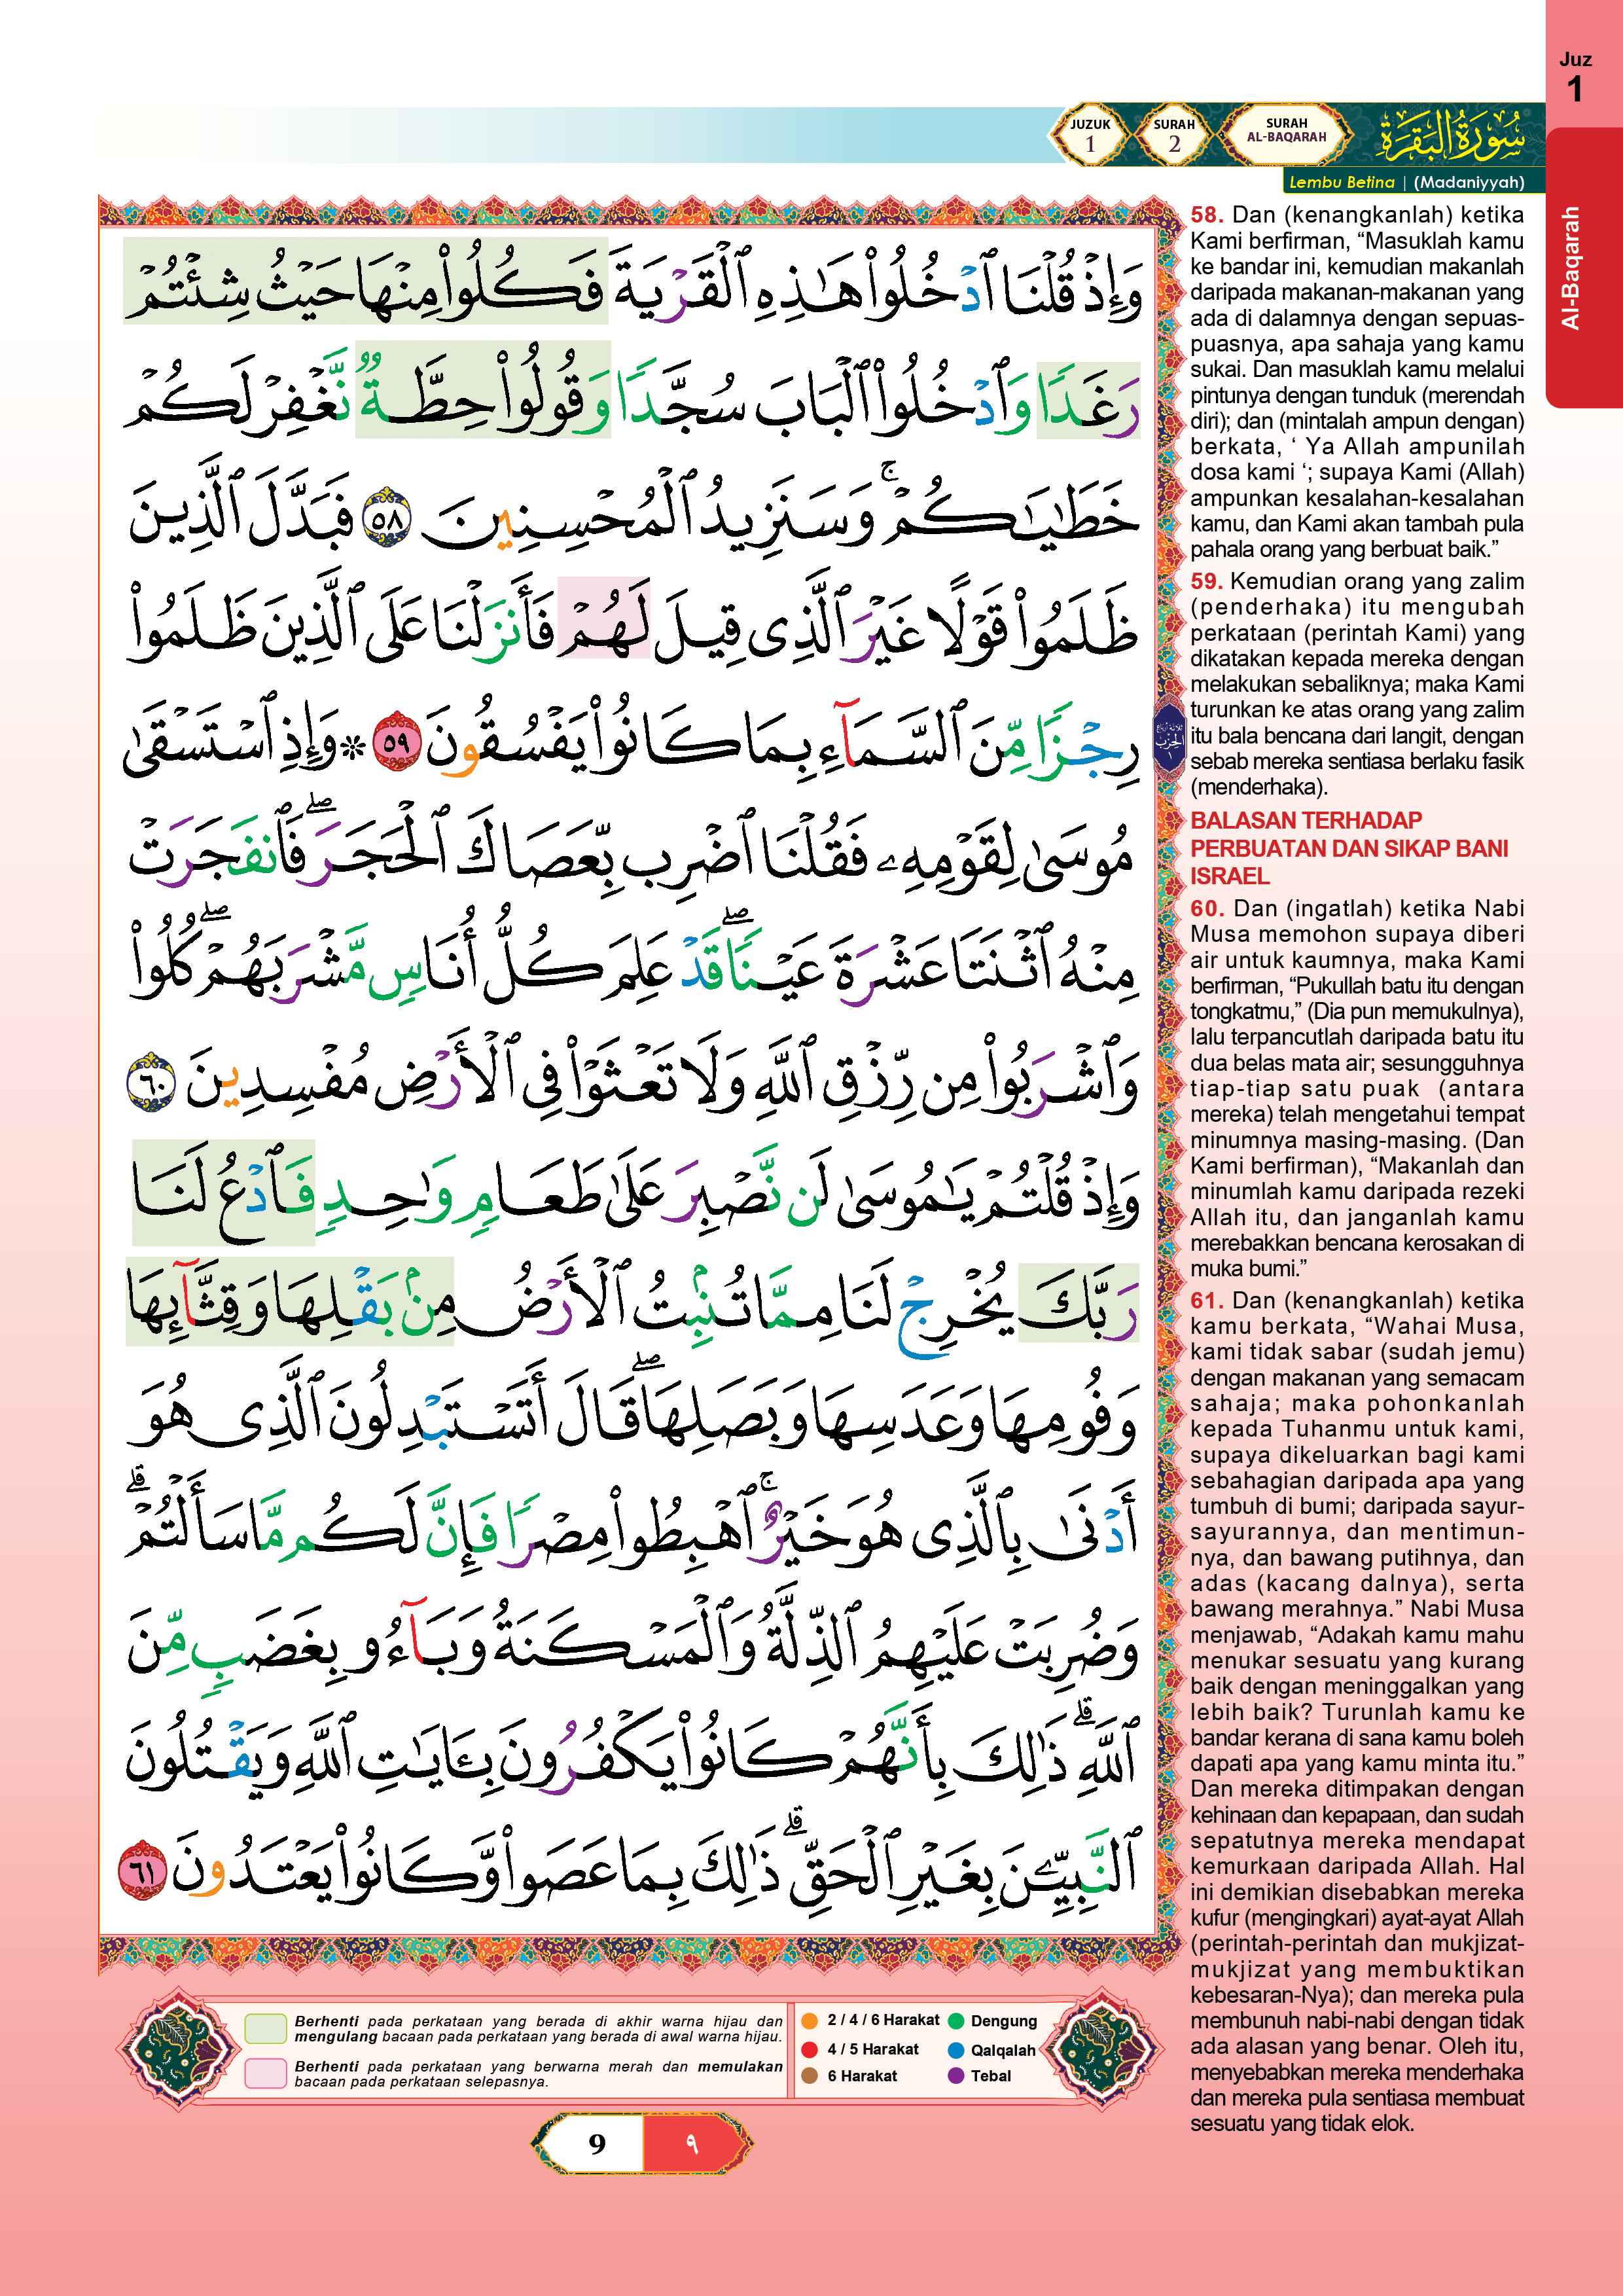 Juz
1
JUZUK
1
SURAH
2
SURAH
AL-BAQARAH
سُورَةُ البَقَرَة
Lembu Betina | (Madaniyyah)
Al-Baqarah
وَإِذْ قُلْنَا ٱدْخُلُوا۟ هَـٰذِهِ ٱلْقَرْيَةَ فَكُلُوا۟ مِنْهَا حَيْثُ شِئْتُمْ
رَغَدًا وَٱدْخُلُوا۟ ٱلْبَابَ سُجَّدًا وَقُولُوا۟ حِطَّةٌ نَّغْفِرْ لَكُمْ
خَطَـٰيَـٰكُمْ ۚ وَسَنَزِيدُ ٱلْمُحْسِنِينَ ٥٨ فَبَدَّلَ ٱلَّذِينَ
ظَلَمُوا۟ قَوْلًا غَيْرَ ٱلَّذِى قِيلَ لَهُمْ فَأَنزَلْنَا عَلَى ٱلَّذِينَ ظَلَمُوا۟
رِجْزًا مِّنَ ٱلسَّمَآءِ بِمَا كَانُوا۟ يَفْسُقُونَ ٥٩ * وَإِذِ ٱسْتَسْقَىٰ
مُوسَىٰ لِقَوْمِهِۦ فَقُلْنَا ٱضْرِب بِّعَصَاكَ ٱلْحَجَرَ ۖ فَٱنفَجَرَتْ
مِنْهُ ٱثْنَتَا عَشْرَةَ عَيْنًا ۖ قَدْ عَلِمَ كُلُّ أُنَاسٍ مَّشْرَبَهُمْ ۖ كُلُوا۟
وَٱشْرَبُوا۟ مِن رِّزْقِ ٱللَّهِ وَلَا تَعْثَوْا۟ فِى ٱلْأَرْضِ مُفْسِدِينَ ٦٠
وَإِذْ قُلْتُمْ يَـٰمُوسَىٰ لَن نَّصْبِرَ عَلَىٰ طَعَامٍ وَٰحِدٍ فَٱدْعُ لَنَا
رَبَّكَ يُخْرِجْ لَنَا مِمَّا تُنۢبِتُ ٱلْأَرْضُ مِنۢ بَقْلِهَا وَقِثَّآئِهَا
وَفُومِهَا وَعَدَسِهَا وَبَصَلِهَا ۖ قَالَ أَتَسْتَبْدِلُونَ ٱلَّذِى هُوَ
أَدْنَىٰ بِٱلَّذِى هُوَ خَيْرٌ ۚ ٱهْبِطُوا۟ مِصْرًا فَإِنَّ لَكُم مَّا سَأَلْتُمْ ۗ
وَضُرِبَتْ عَلَيْهِمُ ٱلذِّلَّةُ وَٱلْمَسْكَنَةُ وَبَآءُو بِغَضَبٍ مِّنَ
ٱللَّهِ ۗ ذَٰلِكَ بِأَنَّهُمْ كَانُوا۟ يَكْفُرُونَ بِـَٔايَـٰتِ ٱللَّهِ وَيَقْتُلُونَ
ٱلنَّبِيِّـۧنَ بِغَيْرِ ٱلْحَقِّ ۗ ذَٰلِكَ بِمَا عَصَوا۟ وَّكَانُوا۟ يَعْتَدُونَ ٦١
58. Dan (kenangkanlah) ketika
Kami berfirman, “Masuklah kamu
ke bandar ini, kemudian makanlah
daripada makanan-makanan yang
ada di dalamnya dengan sepuas-
puasnya, apa sahaja yang kamu
sukai. Dan masuklah kamu melalui
pintunya dengan tunduk (merendah
diri); dan (mintalah ampun dengan)
berkata, ‘ Ya Allah ampunilah
dosa kami ‘; supaya Kami (Allah)
ampunkan kesalahan-kesalahan
kamu, dan Kami akan tambah pula
pahala orang yang berbuat baik.”
59. Kemudian orang yang zalim
(penderhaka) itu mengubah
perkataan (perintah Kami) yang
dikatakan kepada mereka dengan
melakukan sebaliknya; maka Kami
turunkan ke atas orang yang zalim
itu bala bencana dari langit, dengan
sebab mereka sentiasa berlaku fasik
(menderhaka).
BALASAN TERHADAP
PERBUATAN DAN SIKAP BANI
ISRAEL
60. Dan (ingatlah) ketika Nabi
Musa memohon supaya diberi
air untuk kaumnya, maka Kami
berfirman, “Pukullah batu itu dengan
tongkatmu,” (Dia pun memukulnya),
lalu terpancutlah daripada batu itu
dua belas mata air; sesungguhnya
tiap-tiap satu puak (antara
mereka) telah mengetahui tempat
minumnya masing-masing. (Dan
Kami berfirman), “Makanlah dan
minumlah kamu daripada rezeki
Allah itu, dan janganlah kamu
merebakkan bencana kerosakan di
muka bumi.”
61. Dan (kenangkanlah) ketika
kamu berkata, “Wahai Musa,
kami tidak sabar (sudah jemu)
dengan makanan yang semacam
sahaja; maka pohonkanlah
kepada Tuhanmu untuk kami,
supaya dikeluarkan bagi kami
sebahagian daripada apa yang
tumbuh di bumi; daripada sayur-
sayurannya, dan mentimun-
nya, dan bawang putihnya, dan
adas (kacang dalnya), serta
bawang merahnya.” Nabi Musa
menjawab, “Adakah kamu mahu
menukar sesuatu yang kurang
baik dengan meninggalkan yang
lebih baik? Turunlah kamu ke
bandar kerana di sana kamu boleh
dapati apa yang kamu minta itu.”
Dan mereka ditimpakan dengan
kehinaan dan kepapaan, dan sudah
sepatutnya mereka mendapat
kemurkaan daripada Allah. Hal
ini demikian disebabkan mereka
kufur (mengingkari) ayat-ayat Allah
(perintah-perintah dan mukjizat-
mukjizat yang membuktikan
kebesaran-Nya); dan mereka pula
membunuh nabi-nabi dengan tidak
ada alasan yang benar. Oleh itu,
menyebabkan mereka menderhaka
dan mereka pula sentiasa membuat
sesuatu yang tidak elok.
Berhenti pada perkataan yang berada di akhir warna hijau dan
mengulang bacaan pada perkataan yang berada di awal warna hijau.
Berhenti pada perkataan yang berwarna merah dan memulakan
bacaan pada perkataan selepasnya.
2 / 4 / 6 Harakat
4 / 5 Harakat
6 Harakat
Dengung
Qalqalah
Tebal
9
٩